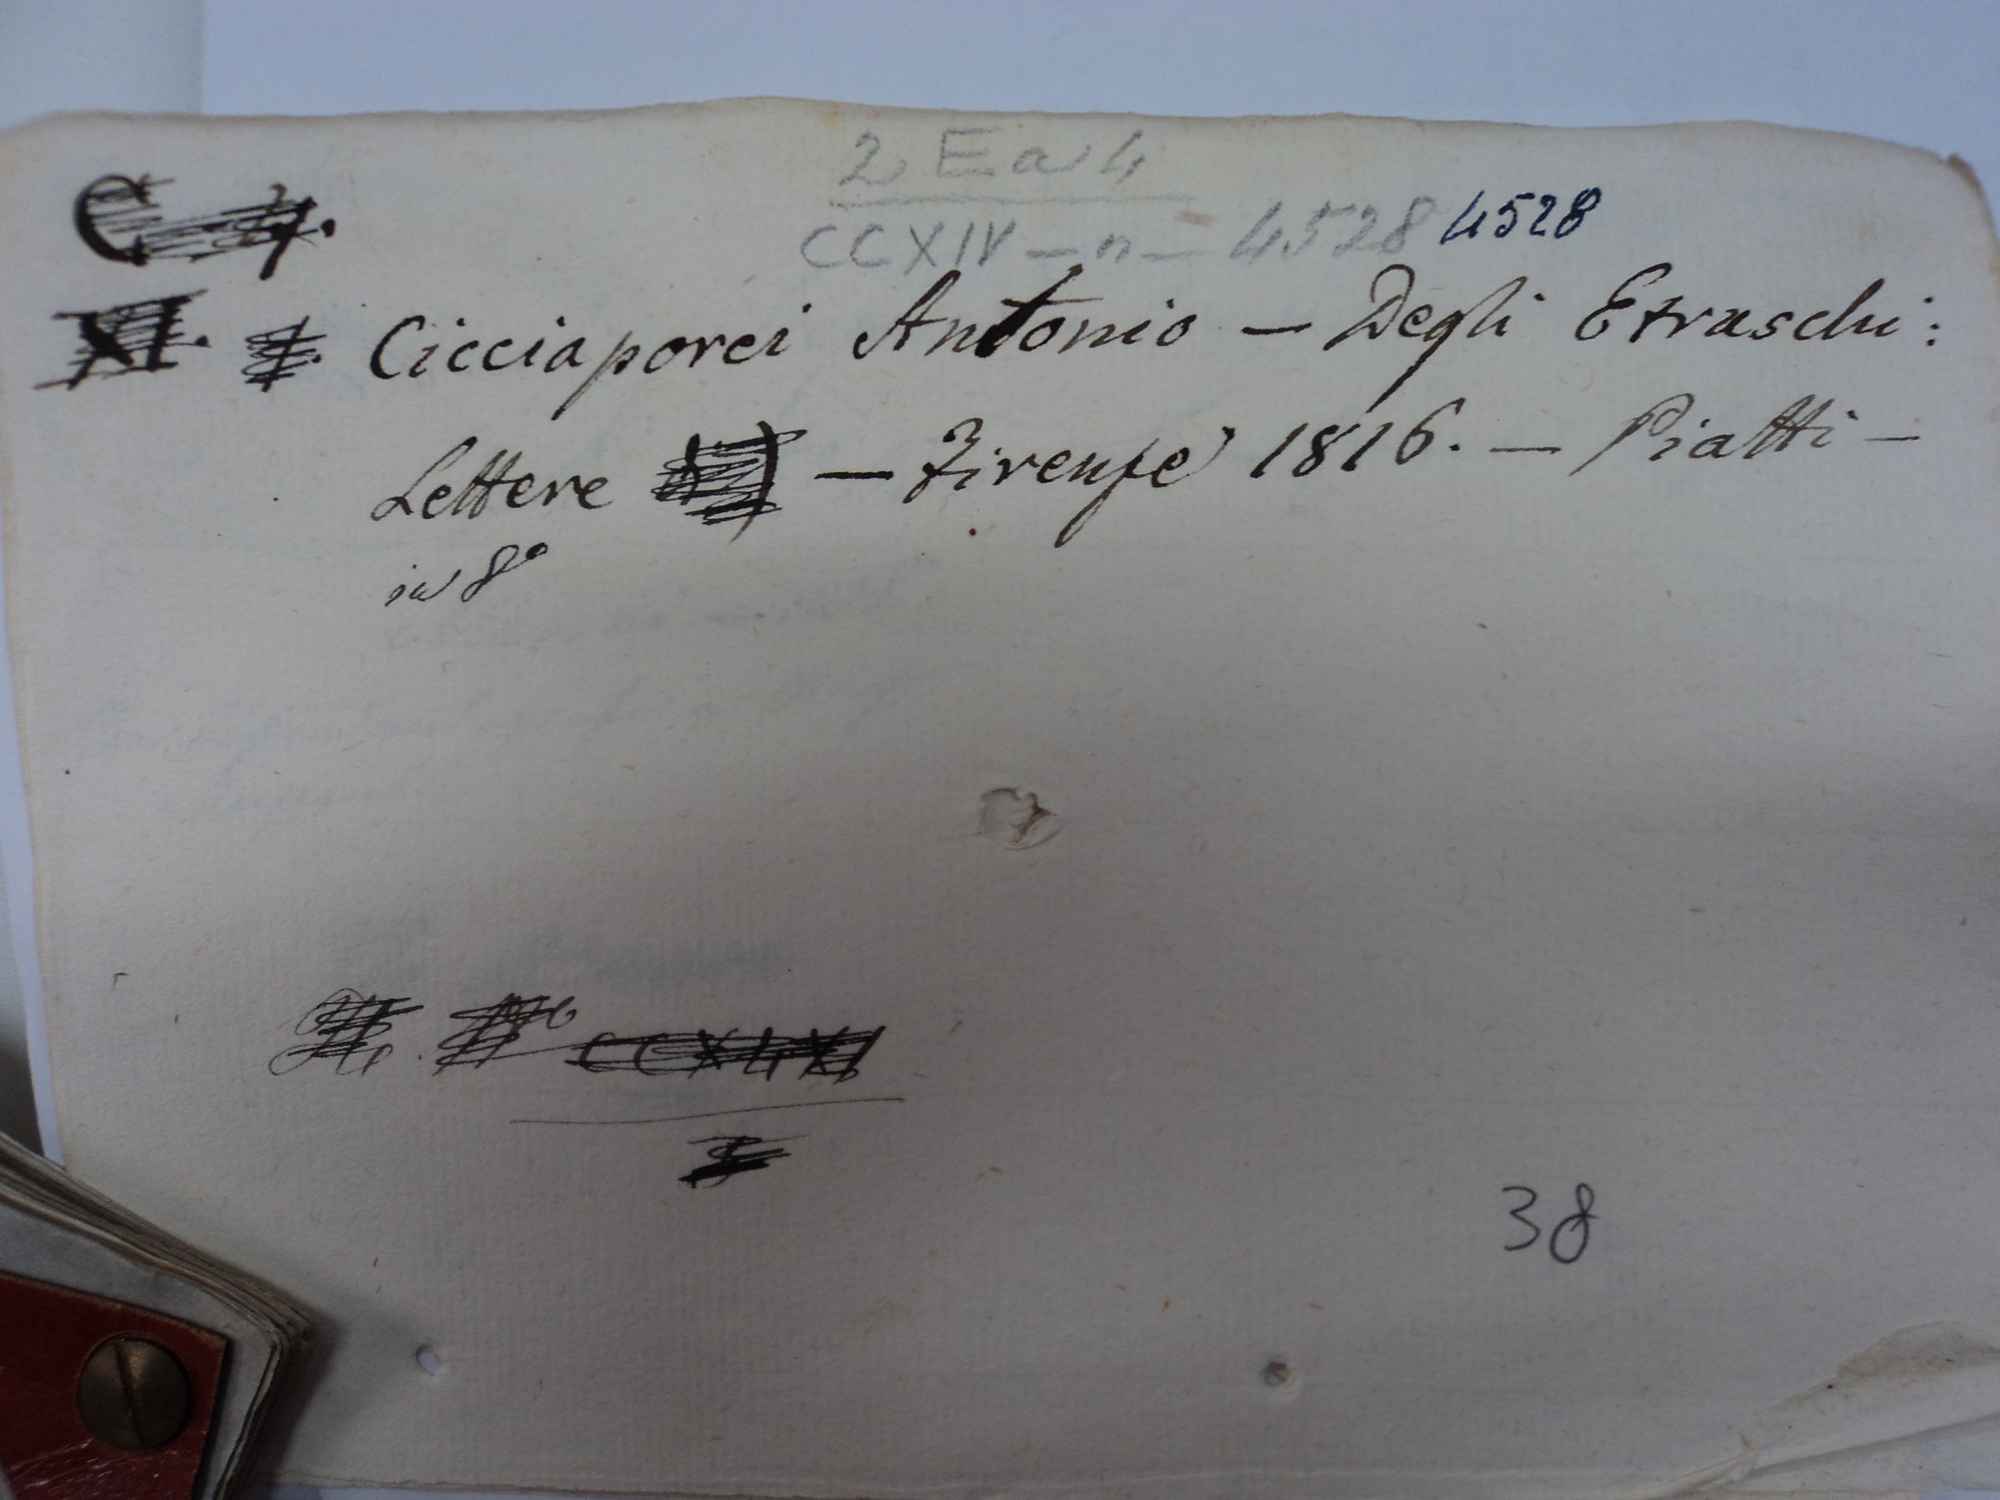 2 Ea 4
CCXIV - n - 4528 4528
Cicciaporci Antonio — Degli Etruschi:
Lettere — Firenze 1816. — Piatti —
in 8°
38